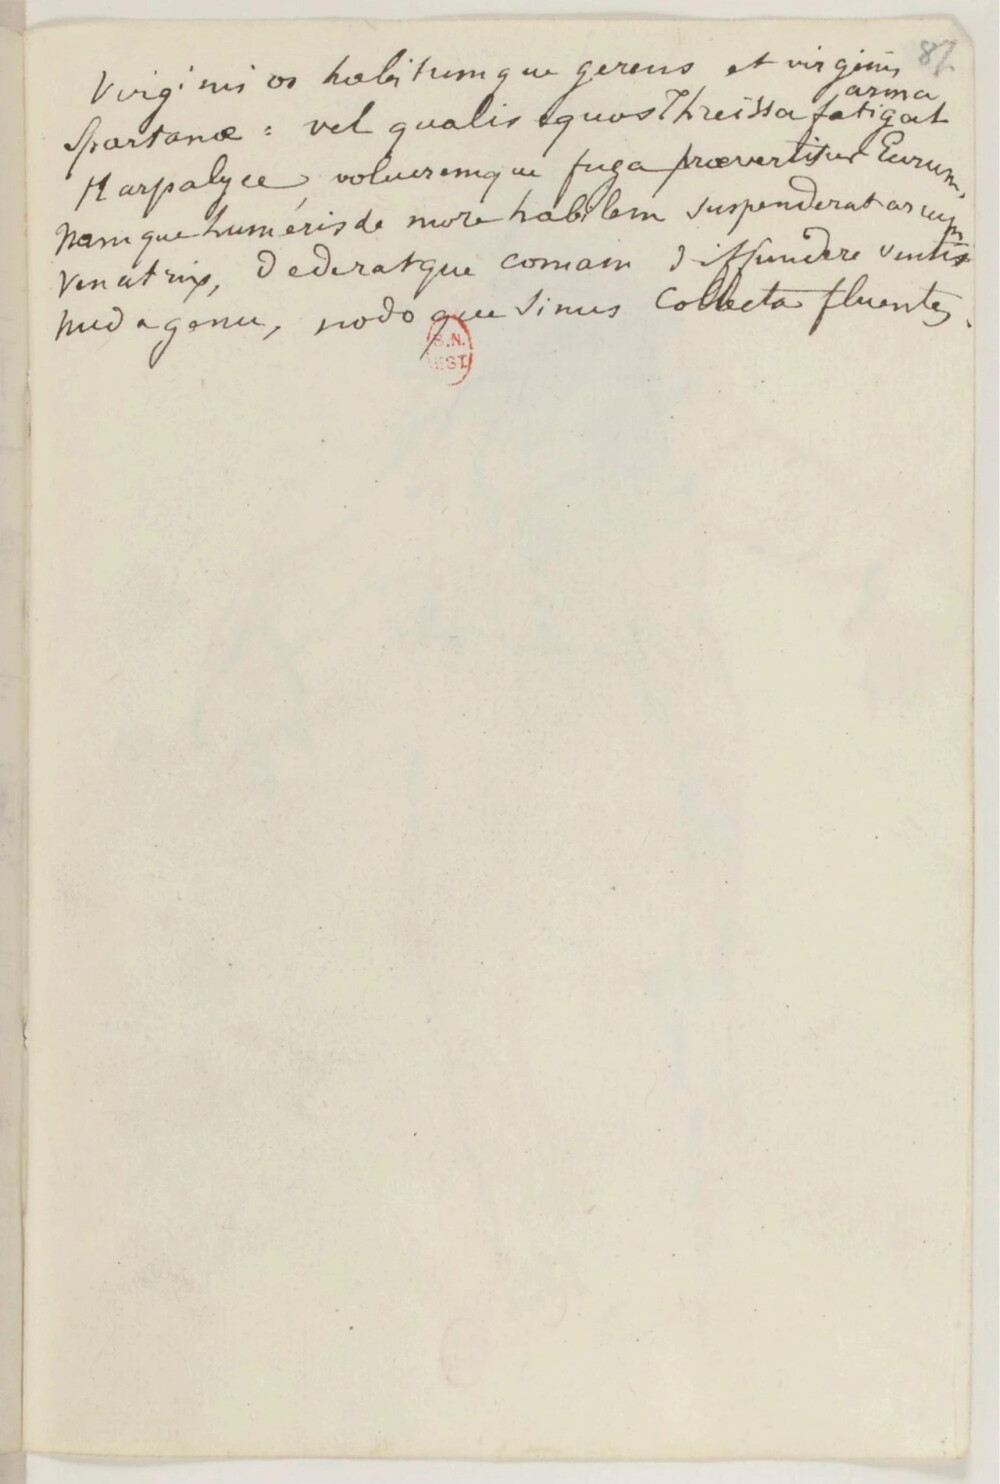 87.
Virginis os habitumque gerens et virginis
arma
Spartanæ : vel qualis equos Threissa fatigat
Harpalyce, volucremque fuga prævertitur Eurum,
Namque humeris de more habilem suspenderat arcum
Venatrix, dederatque comam diffundere ventis
Nuda genu, nodoque sinus collecta fluentes.
B.N.
EST.